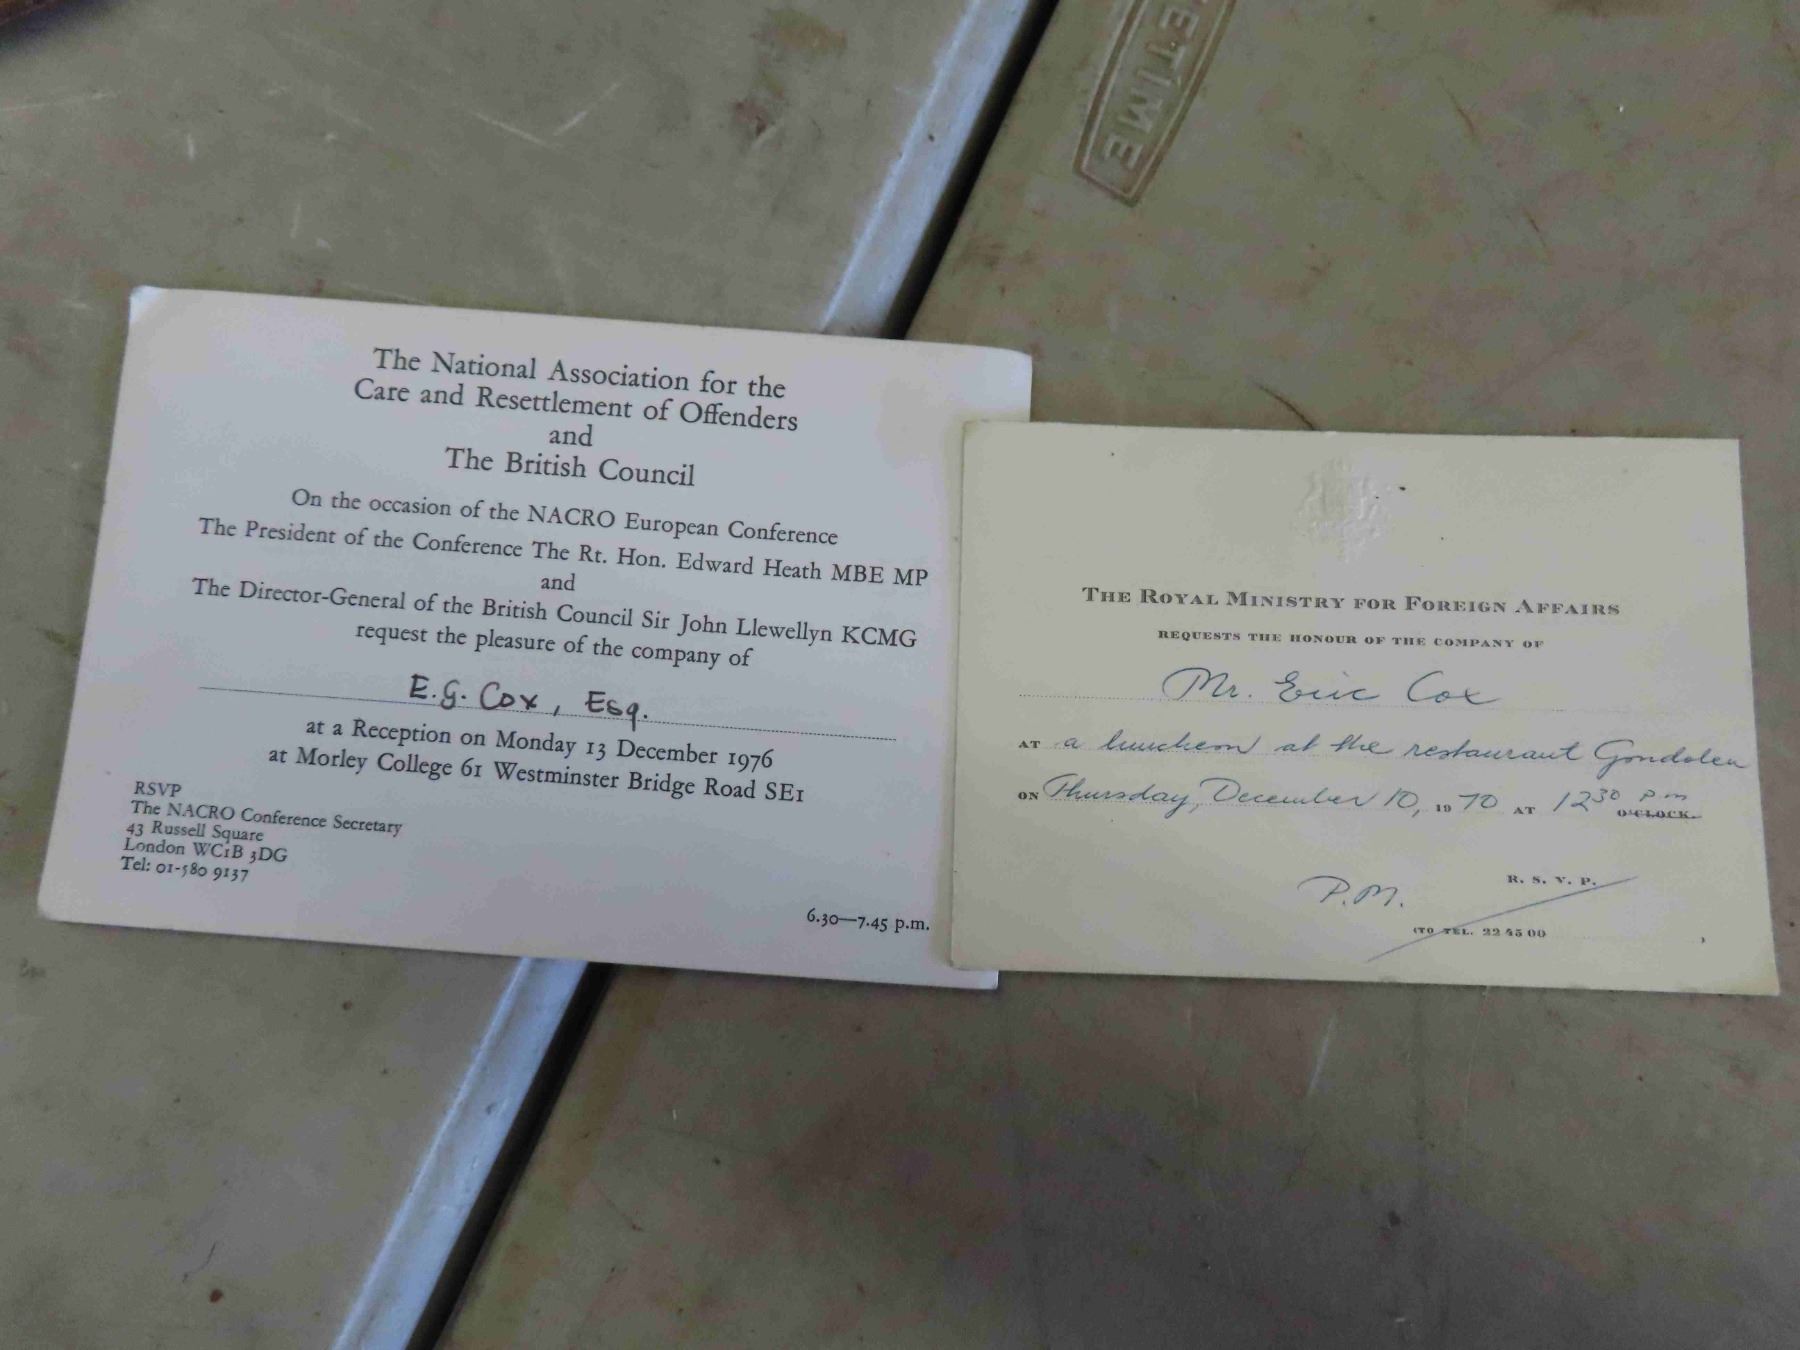 ETIME
The National Association for the
Care and Resettlement of Offenders
and
The British Council
On the occasion of the NACRO European Conference
The President of the Conference The Rt. Hon. Edward Heath MBE MP
and
The Director-General of the British Council Sir John Llewellyn KCMG
request the pleasure of the company of
E.G. Cox, Esq.
at a Reception on Monday 13 December 1976
at Morley College 61 Westminster Bridge Road SE1
RSVP
The NACRO Conference Secretary
43 Russell Square
London WC1B 3DG
Tel: 01-580 9137
6.30—7.45 p.m.
THE ROYAL MINISTRY FOR FOREIGN AFFAIRS
REQUESTS THE HONOUR OF THE COMPANY OF
Mr. Eric Cox
AT a luncheon at the restaurant Gondolen
ON Thursday, December 10, 1970 AT 12 30 p.m
O'CLOCK.
R. S. V. P.
P.M.
(TO TEL. 22 45 00